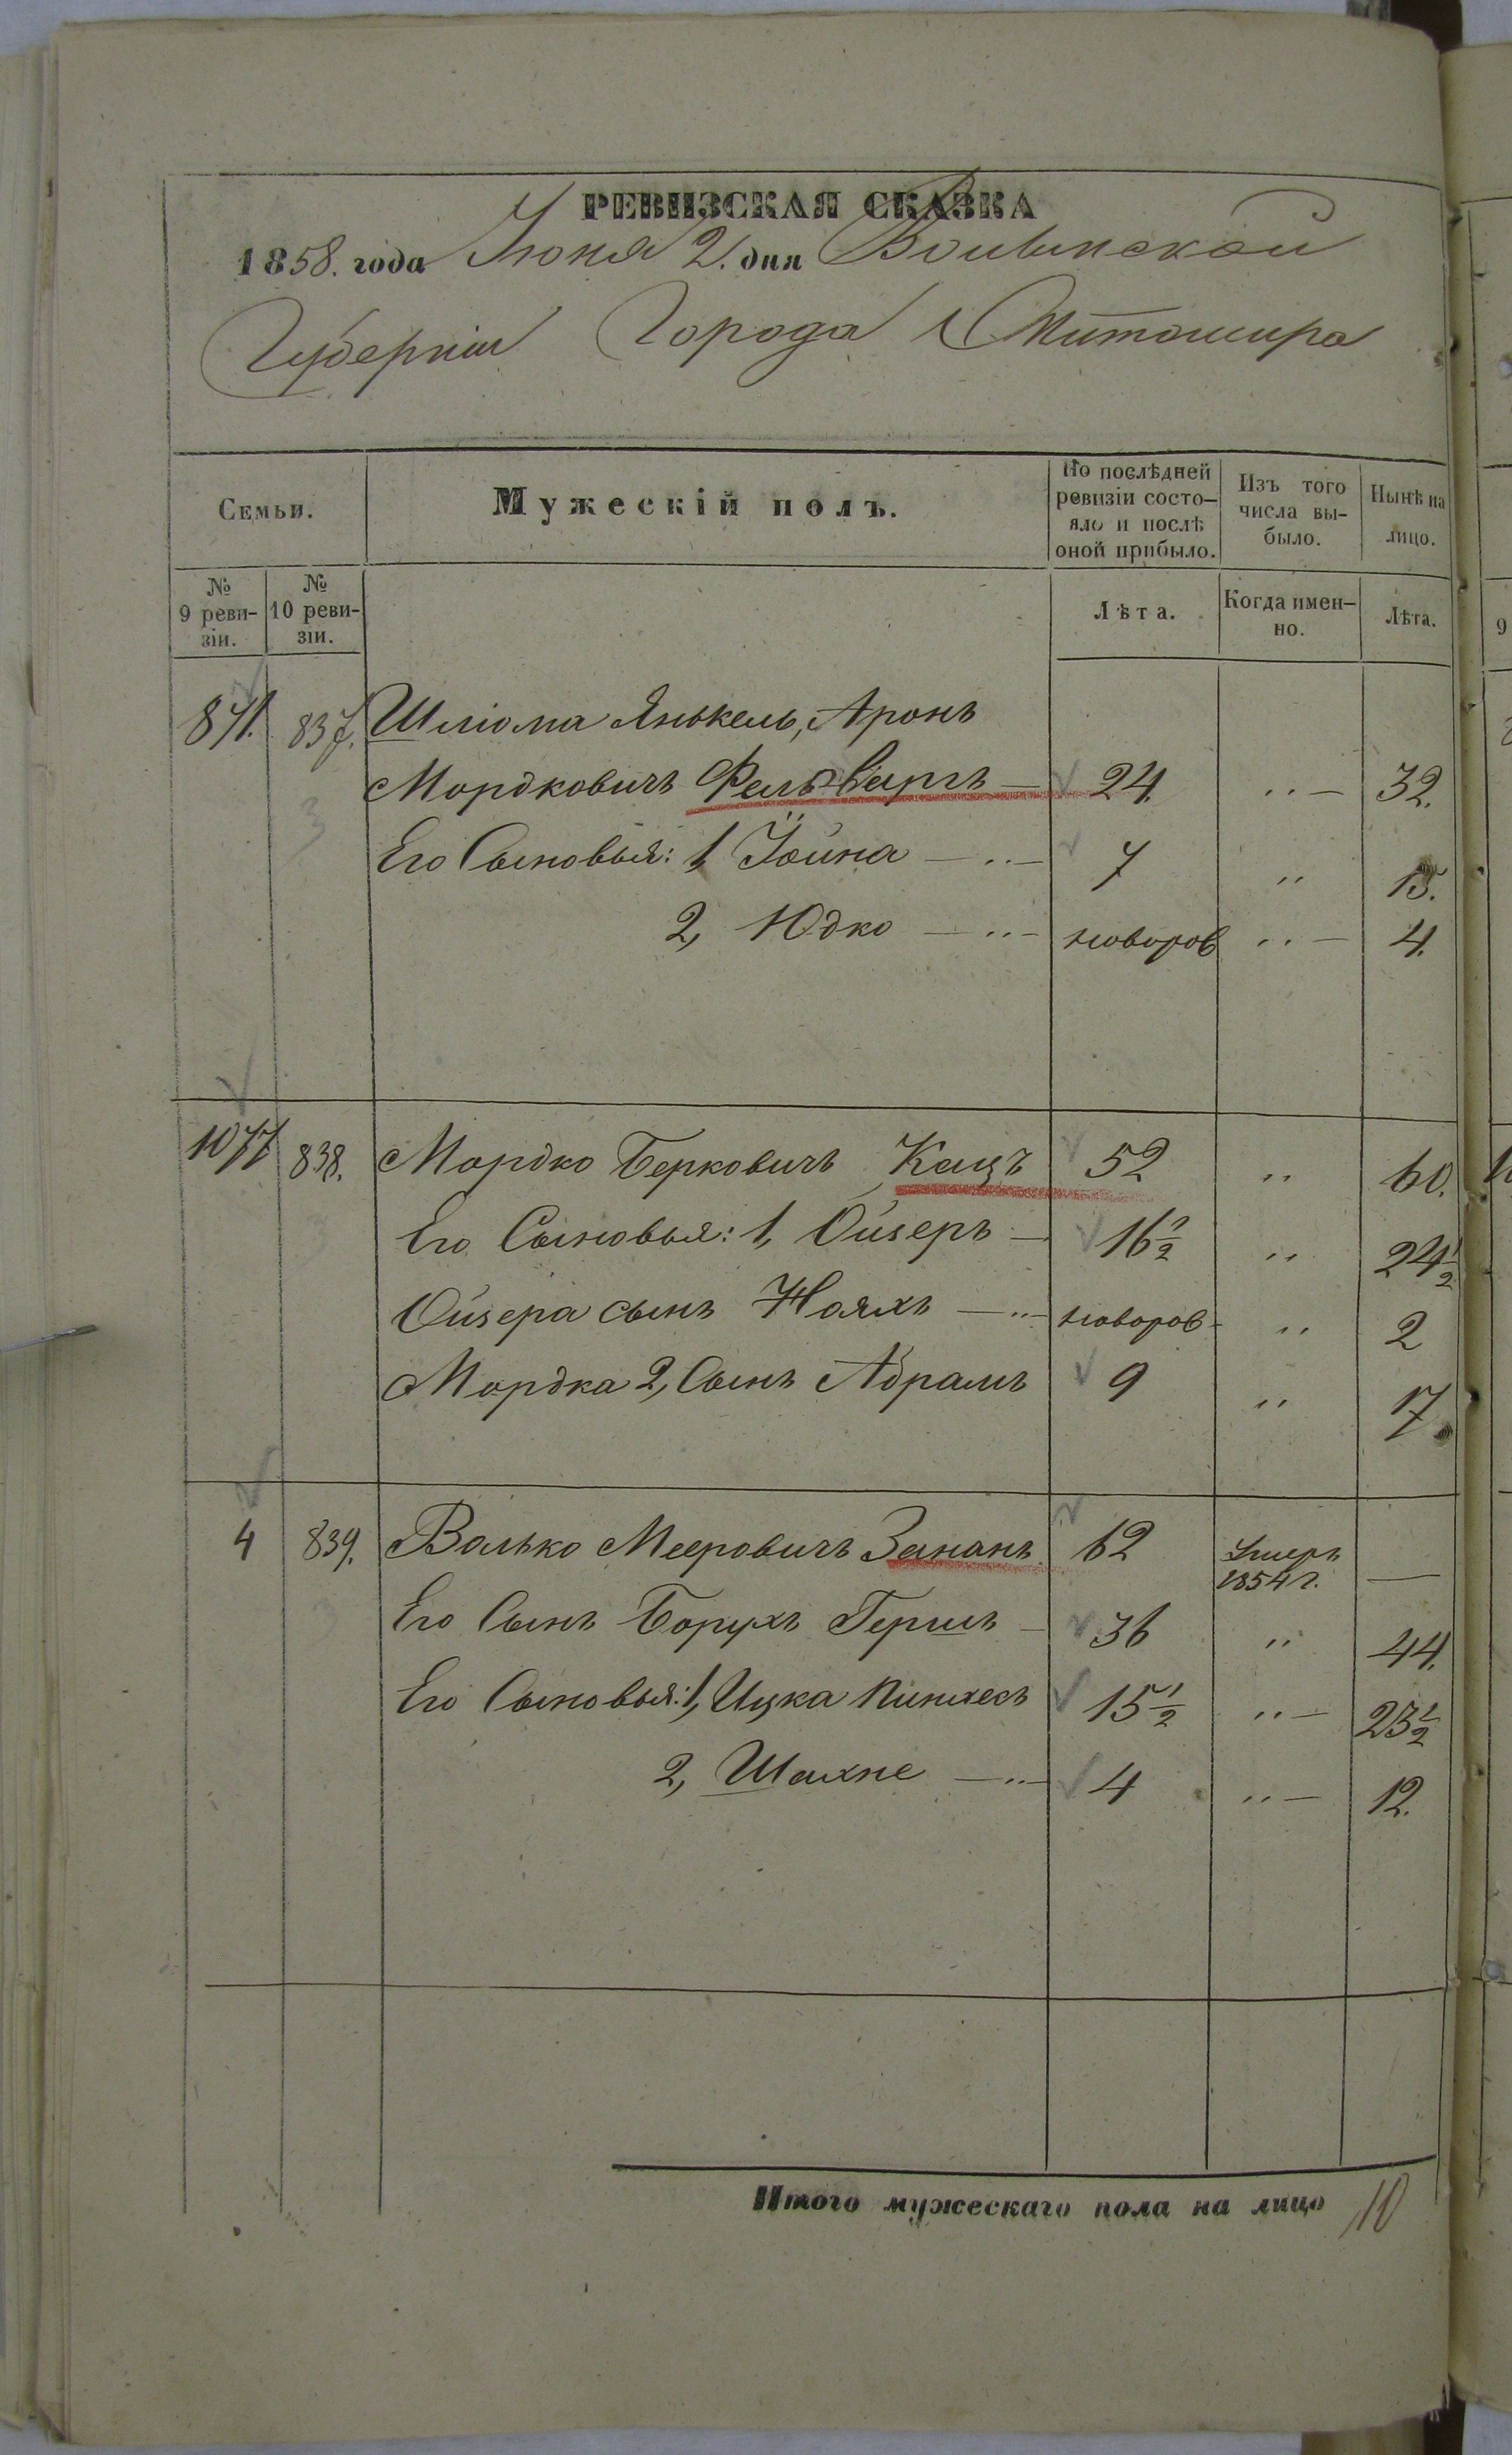 РЕВИЗСКАЯ СКАЗКА
1858. года Июня 2. дня Волынской
Губерніи Города Житомира
Семьи.
Мужескій полъ.
По послѣдней ревизіи состо-яло и послѣ оной прибыло.
Изъ того числа вы-было.
Нынѣ на лицо.
№ 9 реви-зіи.
№ 10 реви-зіи.
Лѣта.
Когда имен-но.
Лѣта.
871. 837. Шліома Янькель, Аронъ
Мордковичъ — 24. „ — 32.
Его Сыновья: 1, Іойна — „ — 7 „ 15.
2, Юдко — „ — новорож „ — 4.
1077 838. Мордко Берковичъ Кацъ 52 „ 60.
Его Сыновья: 1, Ойзеръ — 16½ „ 24½
Ойзера сынъ — „ — новорож „ 2
Мордка 2, Сынъ Абрамъ 9 „ 17.
4 839. Волько Мееровичъ Зананъ 62 Умеръ 1854 г. —
Его Сынъ Борухъ Гершъ — 36 „ 44.
Его Сыновья: 1, Ицка Пинхесъ 15½ „ — 23½
2, Шахне — „ — 4 „ — 12.
Итого мужескаго пола на лицо 10